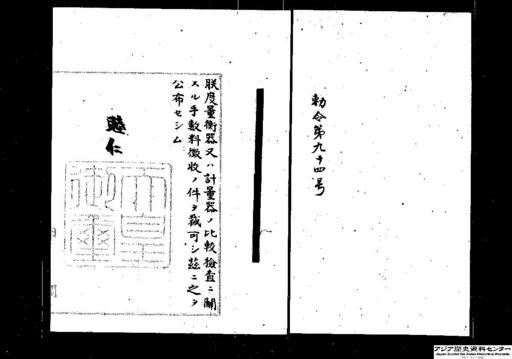 勅令第九十四号
朕度量衡器又ハ計量器ノ比較検査ニ關
スル手数料徴收ノ件ヲ裁可シ茲ニ之ヲ
公布セシム
睦仁
天皇
御璽
アジア歴史資料センター
Japan Center for Asian Historical Records